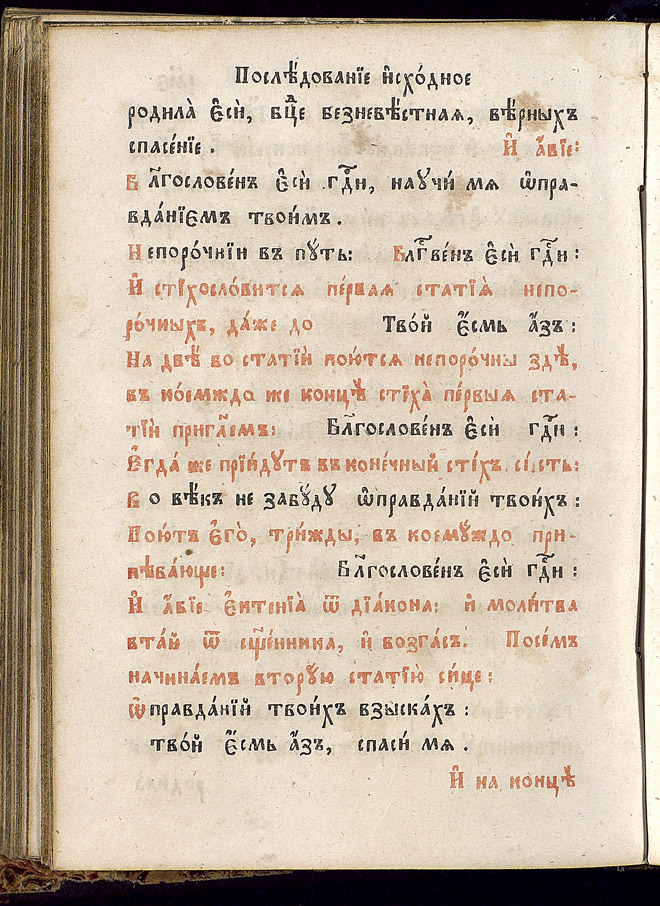 Послѣ́дованїе и҆схо́дное
родила̀ є҆сѝ, бц҃е безневѣ́стная, вѣ́рныхъ
спасе́нїе : И҆ а҆́вїе:
Бл҃гослове́нъ є҆сѝ гдⷭ҇и, научи́ мѧ ѡ҆пра-
вда́нїємъ твои́мъ .
Непоро́чнїи въ пꙋ́ть: Блгⷭ҇ве́нъ є҆сѝ гдⷭ҇и :
И҆ стїхосло́витсѧ пе́рваѧ статїѧ̀ непо-
ро́чныхъ, да́же до Тво́й є҆́смь а҆́зъ :
На двѣ́ бо статїи́ пою́тсѧ непоро́чны здѣ̀,
въ ко́емждо же концѣ̀ стїха̀ пе́рвыѧ ста-
тїи́ пригл҃аемъ: Бл҃гослове́нъ є҆сѝ гдⷭ҇и :
Є҆гда́ же прїи́дꙋтъ въ коне́чный сті́хъ, си́есть:
Во вѣ́къ не забꙋ́дꙋ ѡ҆правда́нїй твои́хъ :
Пою́тъ є҆го̀, три́жды, въ коемꙋ́ждо при-
пѣва́юще: Бл҃гослове́нъ є҆сѝ гдⷭ҇и :
И҆ а҆́вїе є҆ктенїа̀ ѿ дїа́кона: и҆ моли́тва
вта́й ѿ сщ҃е́нника, и҆ во́згасъ. Посе́мъ
начина́емъ вторꙋ́ю статїю̀ си́це :
Ѡ҆правда́нїй твои́хъ взыска́хъ :
тво́й є҆́смь а҆́зъ, спаси́ мѧ .
И҆ на концѣ̀